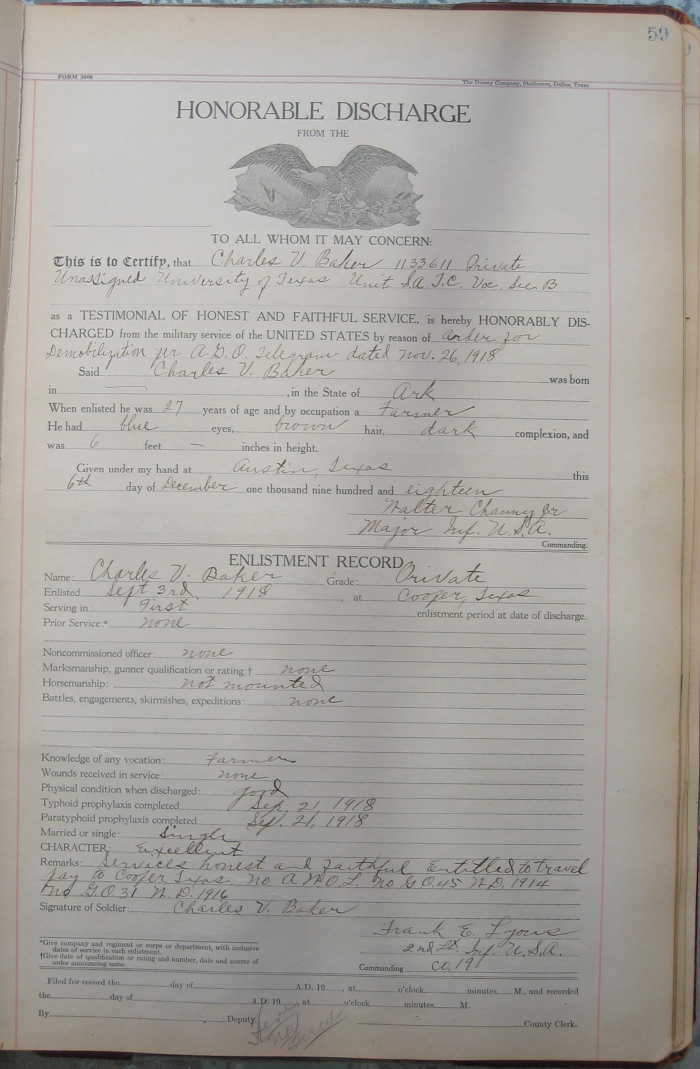 59
FORM 3000
The Dorsey Company, Stationers, Dallas, Texas
HONORABLE DISCHARGE
FROM THE
TO ALL WHOM IT MAY CONCERN:
This is to Certify, that Charles V. Baker 1133611 Private
Unassigned University of Texas Unit S.A.T.C. Voc. Sec. B
as a TESTIMONIAL OF HONEST AND FAITHFUL SERVICE, is hereby HONORABLY DIS-
CHARGED from the military service of the UNITED STATES by reason of order for
Demobilization pr A.G.O. Telegram dated Nov. 26, 1918
Said Charles V. Baker was born
in — , in the State of Ark
When enlisted he was 27 years of age and by occupation a Farmer
He had blue eyes, brown hair, dark complexion, and
was 6 feet — inches in height.
Given under my hand at Austin, Texas this
6th day of December one thousand nine hundred and eighteen
Walter Jr
Major Inf. U.S.A.
Commanding.
ENLISTMENT RECORD
Name: Charles V. Baker Grade: Private
Enlisted Sept 3rd, 1918, at Cooper, Texas
Serving in First enlistment period at date of discharge.
Prior Service * none
Noncommissioned officer: none
Marksmanship, gunner qualification or rating † none
Horsemanship: not mounted
Battles, engagements, skirmishes, expeditions: none
Knowledge of any vocation: Farmer
Wounds received in service: none
Physical condition when discharged: good
Typhoid prophylaxis completed Sep. 21, 1918
Paratyphoid prophylaxis completed Sep. 21, 1918
Married or single: Single
CHARACTER: Excellent
Remarks: Services honest and faithful Entitled to travel
pay to Cooper Texas. no A.W.O.L. No G.O. 45 W.D. 1914
G.O. 31 W.D. 1916
Signature of Soldier: Charles V. Baker
Frank E. Lyons
2nd Lt. Inf. U.S.A.
Commanding Co. 191
*Give company and regiment or corps or department, with inclusive
dates of service in each enlistment.
†Give date of qualification or rating and number, date and source of
order announcing same.
Filed for record the day of A.D. 19 , at o'clock minutes M., and recorded
the day of A.D. 19 at o'clock minutes M.
By Deputy County Clerk.